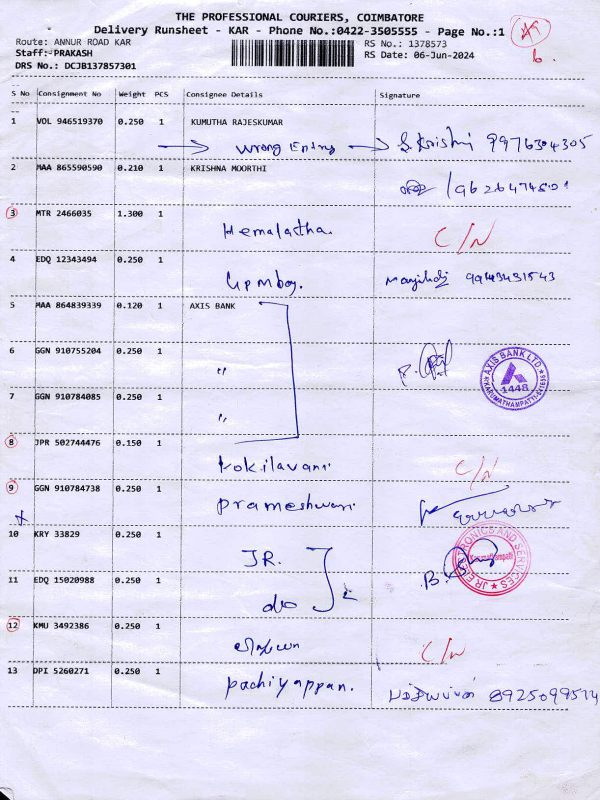 THE PROFESSIONAL COURIERS, COIMBATORE
Delivery Runsheet - KAR - Phone No.:0422-3505555 - Page No.:1
Route: ANNUR ROAD KAR
RS No.: 1378573
Staff: PRAKASH
RS Date: 06-Jun-2024
DRS No.: DCJB137857301
S No Consignment No Weight PCS Consignee Details Signature
1 VOL 946519370 0.250 1 KUMUTHA RAJESKUMAR
Wrong Entry S.Krishni 9976304305
2 MAA 865590590 0.210 1 KRISHNA MOORTHI
3 MTR 2466035 1.300 1
Hemalatha. C/N
4 EDQ 12343494 0.250 1
5 MAA 864839339 0.120 1 AXIS BANK
6 GGN 910755204 0.250 1
"
AXIS BANK LTD.
1448
7 GGN 910784085 0.250 1
"
8 JPR 502744476 0.150 1
Kokilavani C/N
9 GGN 910784738 0.250 1
Prameshwari
10 KRY 33829 0.250 1
JR.
JR ELECTRONICS AND SERVICES
11 EDQ 15020988 0.250 1
do
12 KMU 3492386 0.250 1
C/N
13 DPI 5260271 0.250 1
Pachiyappan. 8925099514